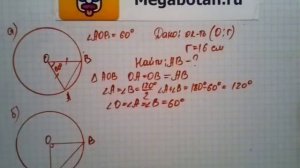 Megabotan.ru
а)
∠AOB = 60°
Дано: ок-ть (O; r)
r = 16 см
Найти: AB - ?
△ AOB OA = OB = AB
∠A = ∠B = 120°/2 ∠A + ∠B = 180° - 60° = 120°
∠O = ∠A = ∠B = 60°
O
B
60°
A
б)
O
B